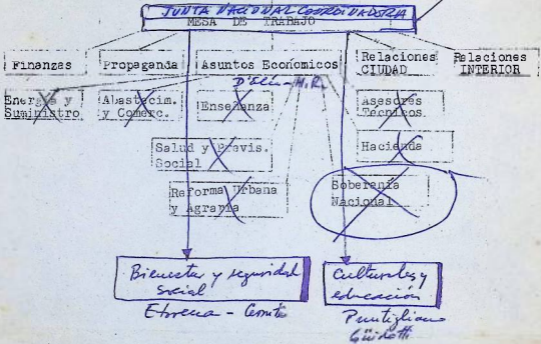 JUNTA NACIONAL COORDINADORA
MESA DE TRABAJO
Finanzas
Propaganda
Asuntos Económicos
Relaciones
CIUDAD
Relaciones
INTERIOR
D'Elía - H.R.
Energía y
Suministro
Abastecim.
y Comerc.
Enseñanza
Asesores
Técnicos.
Salud y Previs.
Social
Hacienda
Reforma Urbana
y Agraria
Soberanía
Nacional
Bienestar y seguridad
social
Culturales y
educación